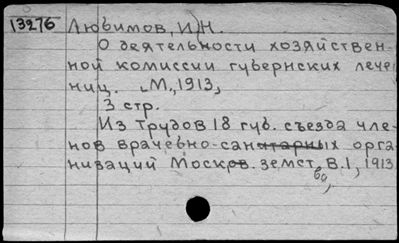 13276 Любимов, И.Н.
О деятельности хозяйствен-
ной комиссии губернских лече
ниц. М., 1913,
3 стр.
Из Трудов 18 губ. съезда чле-
нов врачебно-санитарных орга-
низаций Москов. земст, В.1, 1913
ва,